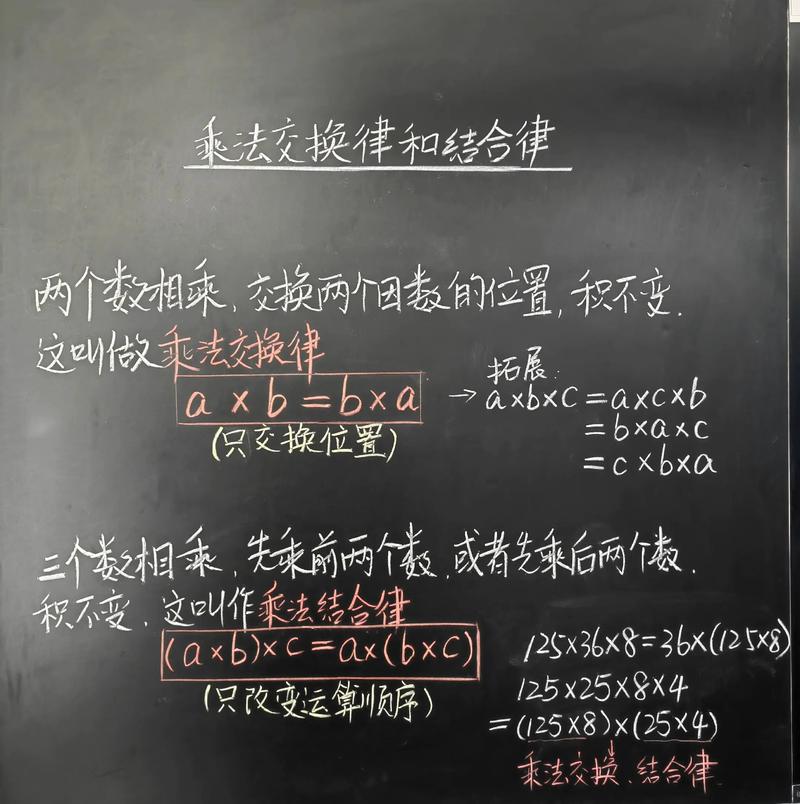 乘法交换律和结合律
两个数相乘,交换两个因数的位置,积不变.
这叫做乘法交换律
a×b=b×a
(只交换位置)
→ 拓展:
a×b×c=a×c×b
=b×a×c
=c×b×a
三个数相乘,先乘前两个数,或者先乘后两个数.
积不变.这叫作乘法结合律
(a×b)×c=a×(b×c)
(只改变运算顺序)
125×36×8=36×(125×8)
125×25×8×4
=(125×8)×(25×4)
乘法交换、结合律